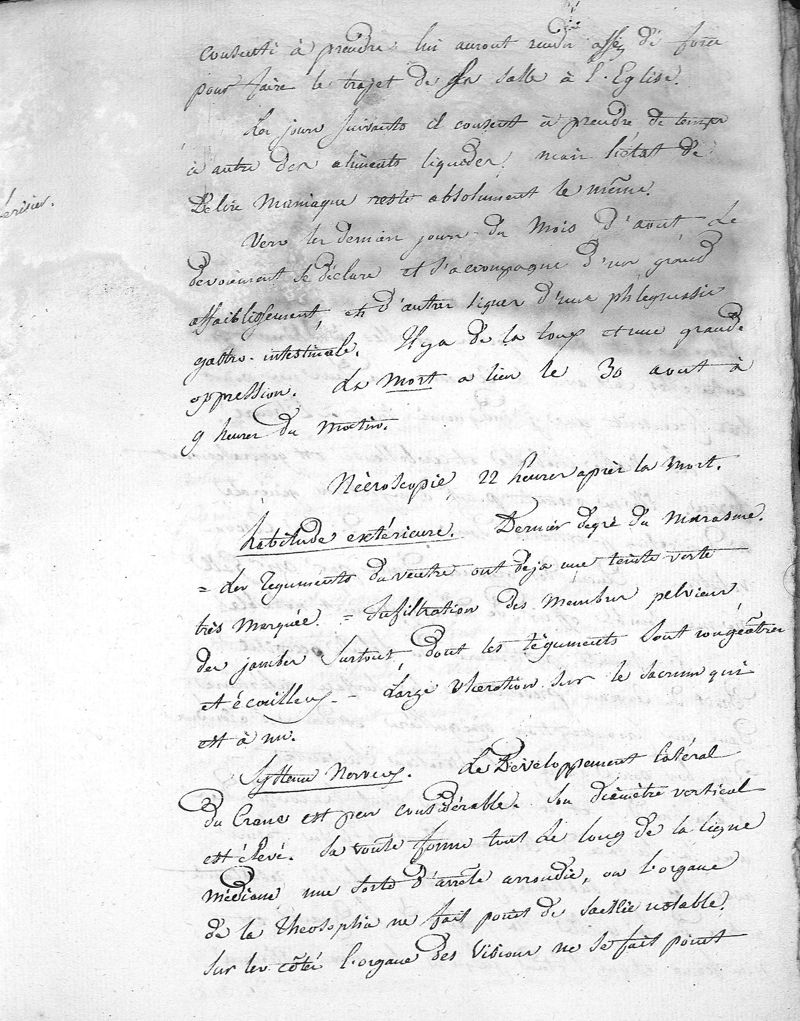 consenti à prendre lui auront rendu assez de force
pour faire le trajet de sa salle à l'Eglise.
Les jours suivants il consent à prendre de temps
à autre des aliments liquides, mais l'état de
Délire Maniaque reste absolument le même.
Vers les derniers jours du Mois d'août le
dévoiement se déclare et s'accompagne d'un grand
affaiblissement et d'autres signes d'une phlegmasie
gastro-intestinale. Il y a de la toux et une grande
oppression. La Mort a lieu le 30 aout à
9 heures du Matin.
Nécroscopie, 22 heures après la Mort.
habitude extérieure. Dernier degré du Marasme.
= Les téguments du ventre ont déja une teinte verte
très Marquée. = Infiltration des Membres pelviens,
des jambes surtout, dont les téguments sont rougeâtres
et écailleux - Large Ulcération sur le sacrum qui
est à nu.
Systeme Nerveux. Le Développement latéral
du Crane est peu considérable. Son diamètre vertical
est élevé. Sa voute forme tout le long de la ligne
médiane une sorte d'arrête arrondie, ou l'organe
de la Théosophie ne fait point de saillie notable.
Sur les côtés l'organe des Visions ne se fait point
érisier.